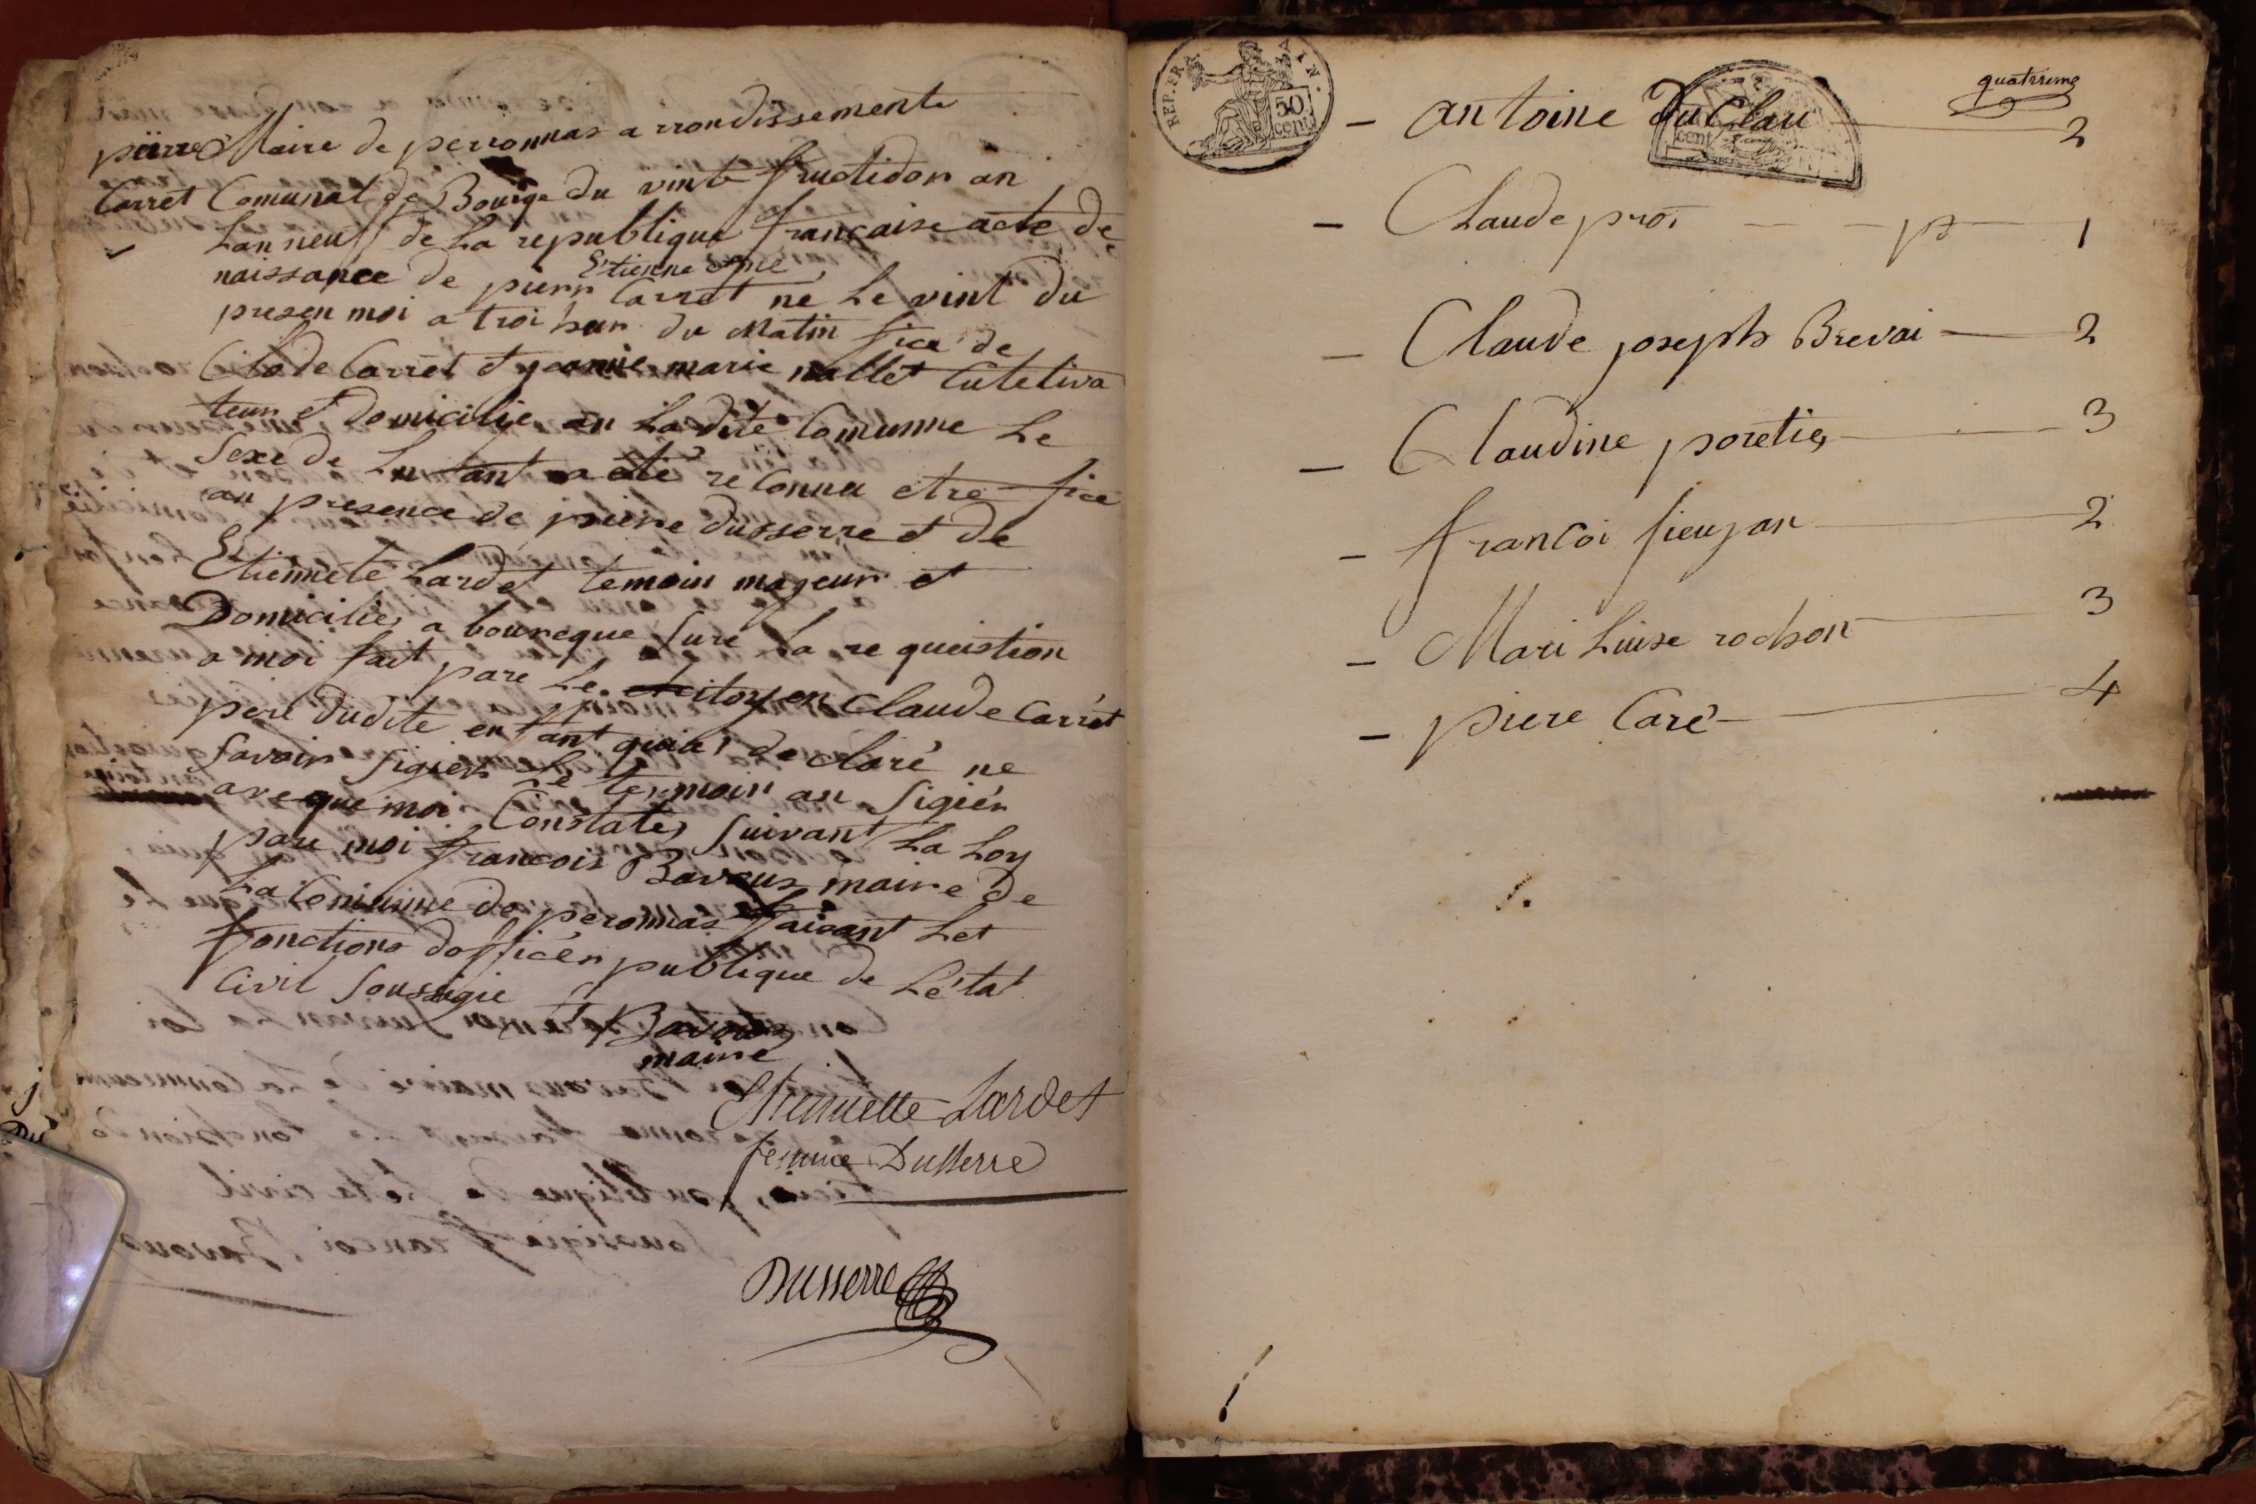 pierre
Carret
Maire de peronnas arrondissement
Comunal de Bourge du vint fructidor an
Lan neuf de La republique francaise acte de
naissance de pierr Etienne Carret né Le vint du
presen moi a troi heur du Matin fice de
Clode Carret et jeanne marie mallet Cutetiva
teur et Domicilie en La dite Comunne Le
Sexe de Lenfant a été reConnu etre fice
an presence de pierre dusserre et de
Etiennete Lardet temoin mageur et
Domicilies a boureque Sure La requeistion
a moi fait pare Le citoyen Claude Carret
pere dudite enfant quia declaré ne
Savoir Sigier Le temoin an Sigiér
aveque moi Constates Suivant La Loy
pare moi francois Bavoux maire de
La Comunne de peronnas faisant Les
fonctions dofficér publique de Létat
Civil Soussigie
f Bavoux
maire
Etiennette Lardet
femme Dusserre
Dusserre
REP. FRA
50
cent
AIN.
quatrieme
- antoine Du Clau 2
- Claude pros 1
- Claude joseph Brevai 2
- Claudine poretie 3
- francoi fieujan 2
- Mari Luise rochon 3
- piere Caré 4